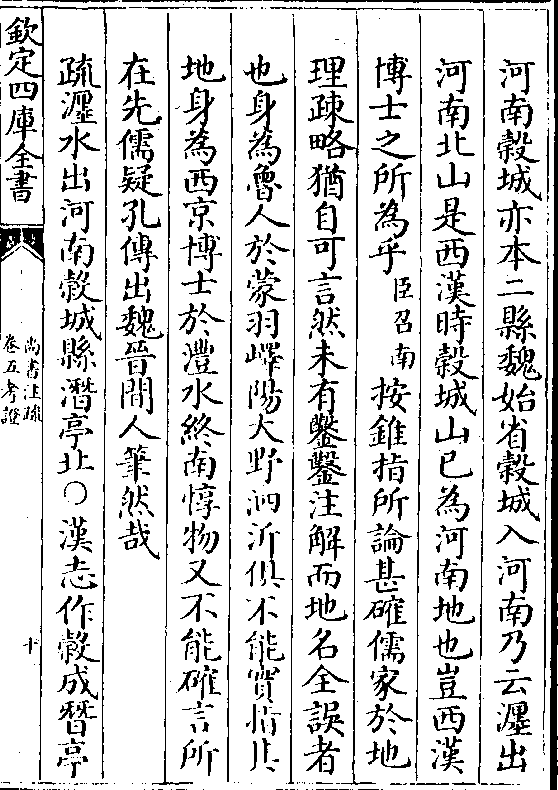 河南穀城亦本二縣魏始省穀城入河南乃云瀍出
河南北山是西漢時穀城山已為河南地也豈西漢
博士之所為乎臣召南按錐指所論甚確儒家於地
理疎略猶自可言然未有鑿鑿注解而地名全誤者
也身為魯人於蒙羽嶧陽大野泗沂俱不能實指其
地身為西京博士於灃水終南惇物又不能確言所
在先儒疑孔傳出魏晉間人筆然哉
疏瀍水出河南穀城縣潛亭北○漢志作穀成朁亭
欽定四庫全書
尚書注疏
卷五考證
十